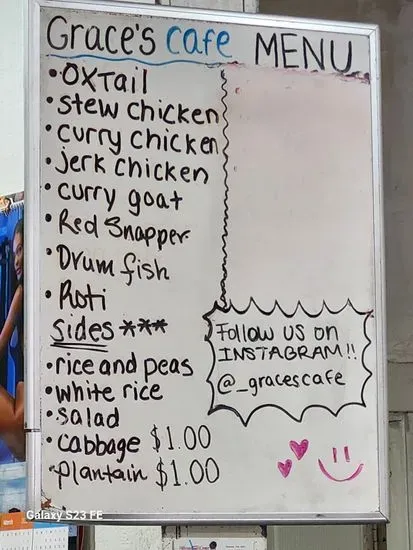 Grace's cafe MENU
•OXTail
•stew chicken
•curry chicken
•jerk chicken
•curry goat
•Red Snapper
•Drum fish
•Roti
Sides ***
•rice and peas
•white rice
•salad
•cabbage $1.00
•plantain $1.00
Follow us on
INSTAGRAM!!
@_gracescafe
Galaxy S23 FE